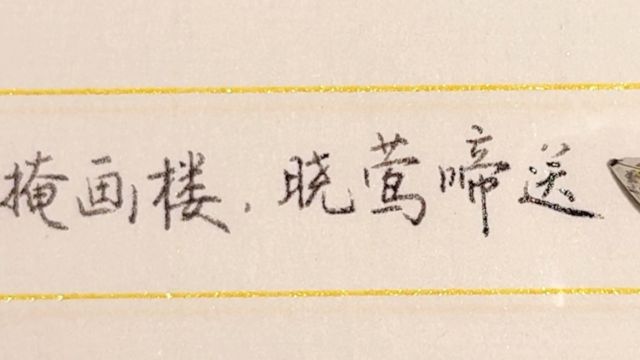 掩画楼，晓莺啼送